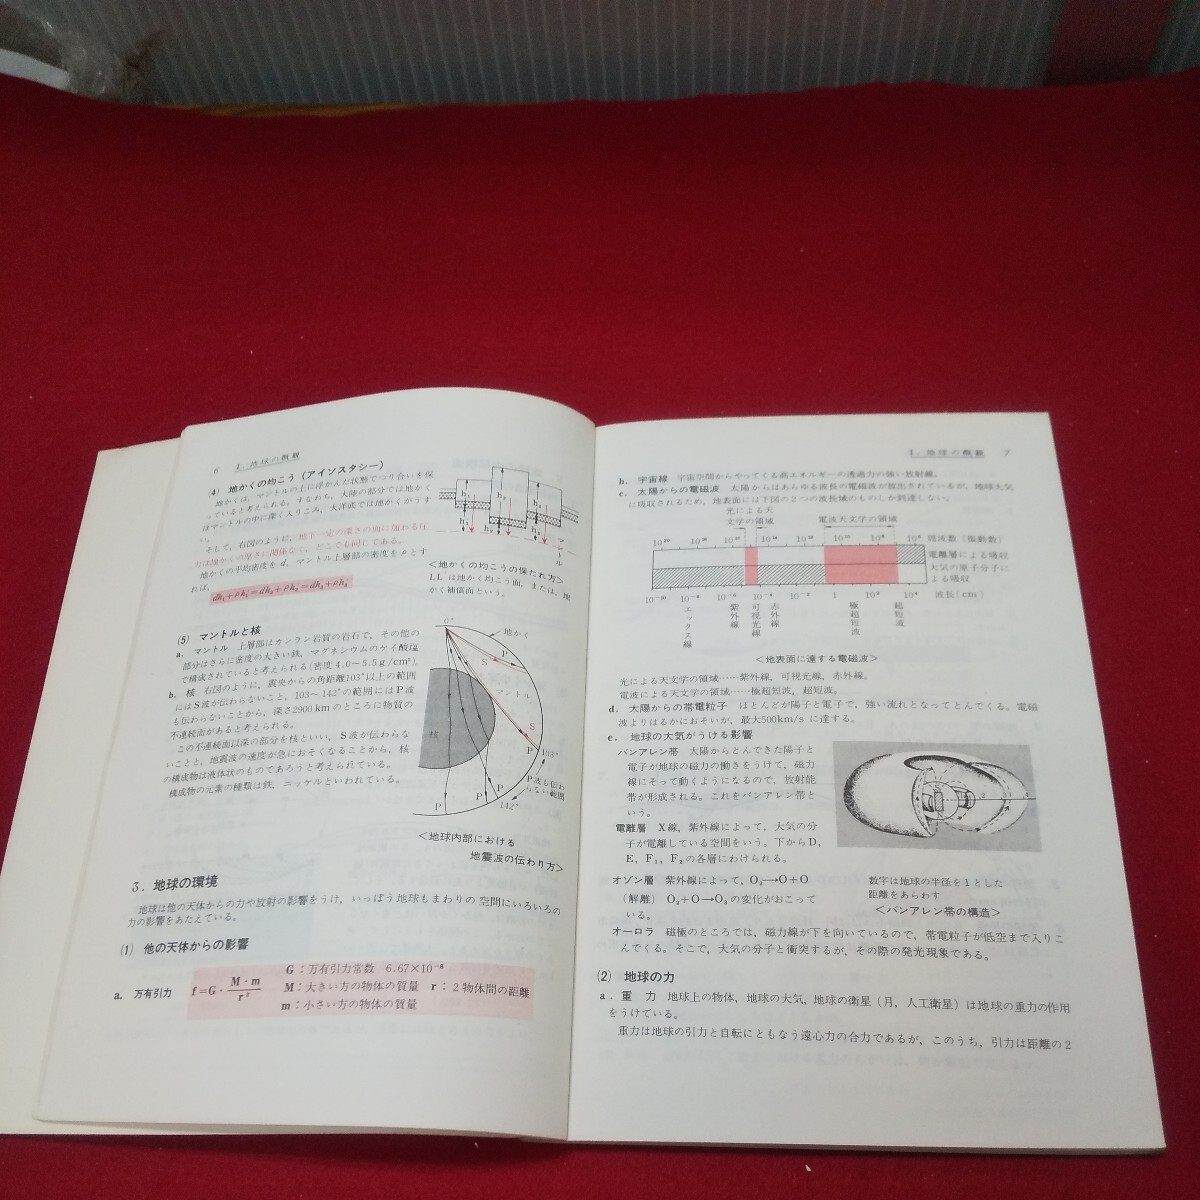 6 I. 地球の概観
(4) 地かくの均こう (アイソスタシー)
地かくは, マントルの上に浮かんだ状態でつり合いを保
っていると考えられる。すなわち, 大陸の部分では地かく
はマントルの中に深く入りこみ, 大洋底では地かくがうす
い。
そして, 右図のように, 地下一定の深さの面に加わる圧
力は地かくの厚さに関係なく, どこでも同じである。
地かくの平均密度を d, マントル上層部の密度を ρ とす
れば,
dh₁+ρh₁'=dh₂+ρh₂'=dh₃+ρh₃
マントル
<地かくの均こうの保たれ方>
LL は地かく均こう面, または, 地
かく補償面という。
(5) マントルと核
a. マントル 上層部はカンラン岩質の岩石で, その他の
部分はさらに密度の大きい鉄, マグネシウムのケイ酸塩
で構成されていると考えられる(密度 4.0〜5.5g/cm³)。
b. 核 右図のように, 震央からの角距離103°以上の範囲
にはS波が伝わらないこと, 103〜142°の範囲にはP波
も伝わらないことから, 深さ2900kmのところに物質の
不連続面があると考えられる。
この不連続面以深の部分を核といい, S波が伝わらな
いことと, 地震波の速度が急におそくなることから, 核
の構成物は液体状のものであろうと考えられている。
構成物の元素の種類は鉄, ニッケルといわれている。
0°
地かく
P
S
マントル
核
S
P
103°
P波も伝わ
らない範囲
142°
P P P
<地球内部における
地震波の伝わり方>
3. 地球の環境
地球は他の天体からの力や放射の影響をうけ, いっぽう地球もまわりの空間にいろいろの
力の影響をあたえている。
(1) 他の天体からの影響
a. 万有引力 f=G·M·m/r²
G:万有引力常数 6.67×10⁻⁸
M:大きい方の物体の質量 r:2物体間の距離
m:小さい方の物体の質量
I. 地球の概観 7
b. 宇宙線 宇宙空間からやってくる高エネルギーの透過力の強い放射線。
c. 太陽からの電磁波 太陽からはあらゆる波長の電磁波が放出されているが, 地球大気
に吸収されるため, 地表面には下図の2つの波長域のものしか到達しない。
光による天
文学の領域
電波天文学の領域
10²⁰ 10¹⁸ 10¹⁶ 10¹⁴ 10¹² 10¹⁰ 10⁸ 10⁶ 周波数 (振動数)
電離層による吸収
大気の原子分子に
よる吸収
10⁻¹⁰ 10⁻⁸ 10⁻⁶ 10⁻⁴ 10⁻² 1 10² 10⁴ 波長(cm)
エックス線
紫外線
可視光線
赤外線
極超短波
超短波
<地表面に達する電磁波>
光による天文学の領域……紫外線, 可視光線, 赤外線。
電波による天文学の領域……極超短波, 超短波。
d. 太陽からの帯電粒子 ほとんどが陽子と電子で, 強い流れとなってとんでくる。電磁
波よりはるかにおそいが, 最大500km/s に達する。
e. 地球の大気がうける影響
バンアレン帯 太陽からとんできた陽子と
電子が地球の磁力の働きをうけて, 磁力
線にそって動くようになるので, 放射能
帯が形成される。これをバンアレン帯と
いう。
電離層 X線, 紫外線によって, 大気の分
子が電離している空間をいう。下からD,
E, F₁, F₂の各層にわけられる。
オゾン層 紫外線によって, O₂→O+O
(解離) O₂+O→O₃の変化がおこって
いる。
数字は地球の半径を1とした
距離をあらわす
<バンアレン帯の構造>
オーロラ 磁極のところでは, 磁力線が下を向いているので, 帯電粒子が低空まで入りこ
んでくる。そこで, 大気の分子と衝突するが, その際の発光現象である。
(2) 地球の力
a. 重力 地球上の物体, 地球の大気, 地球の衛星(月, 人工衛星)は地球の重力の作用
をうけている。
重力は地球の引力と自転にともなう遠心力の合力であるが, このうち, 引力は距離の2